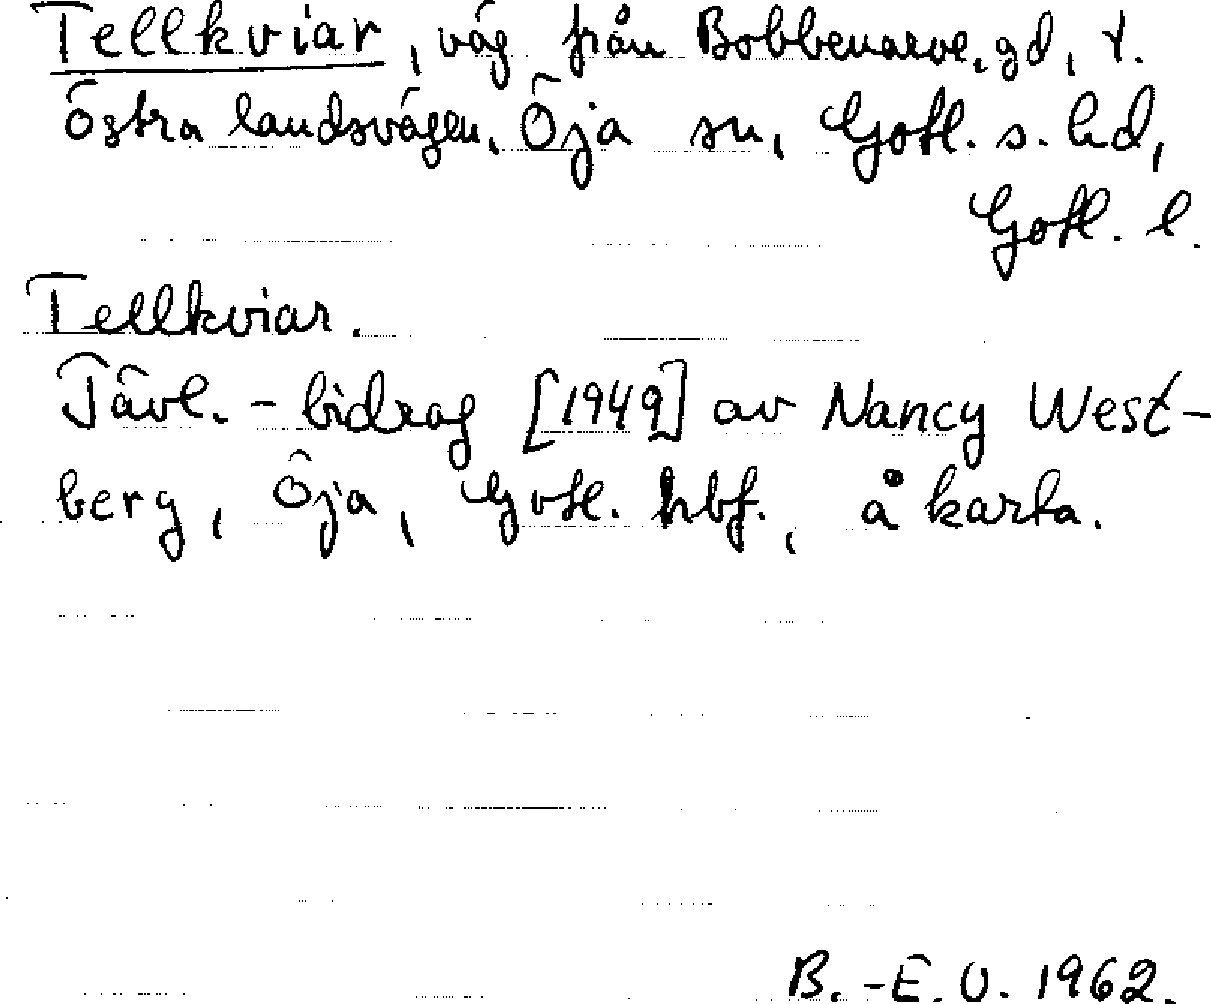 Tellkviar, väg från Bobbenarve, gd, t.
östra landsvägen, Öja sn, Gotl. s. hd,
Gotl. l.
Tellkviar.
Tävl. - bidrag [1949] av Nancy West-
berg, Öja, Gotl. hbf., å karta.
B.-E. U. 1962.